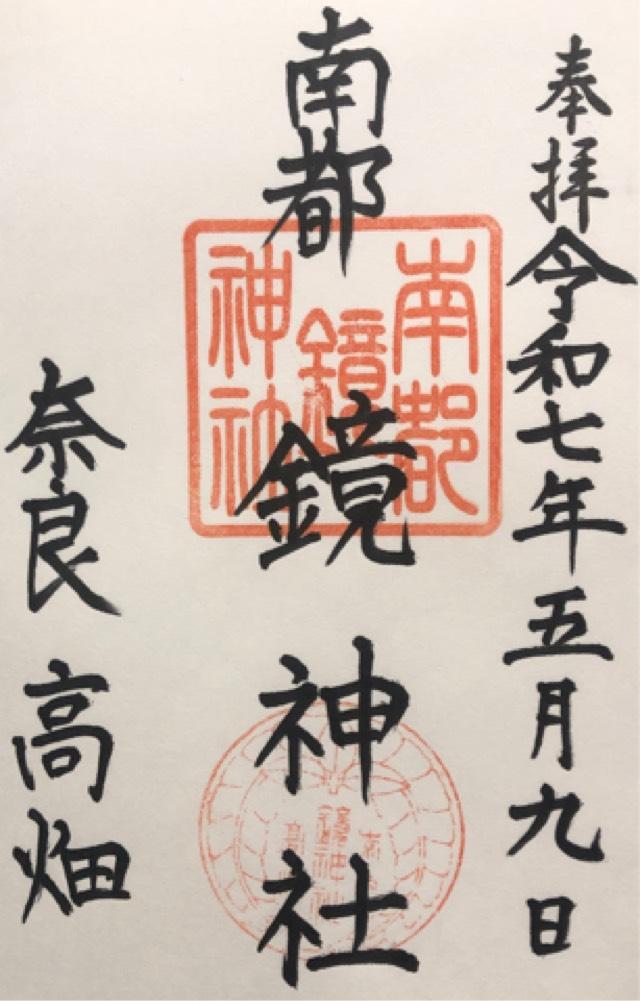 奉拝令和七年五月九日
南都鏡神社
南都
鏡
神社
奈良高畑